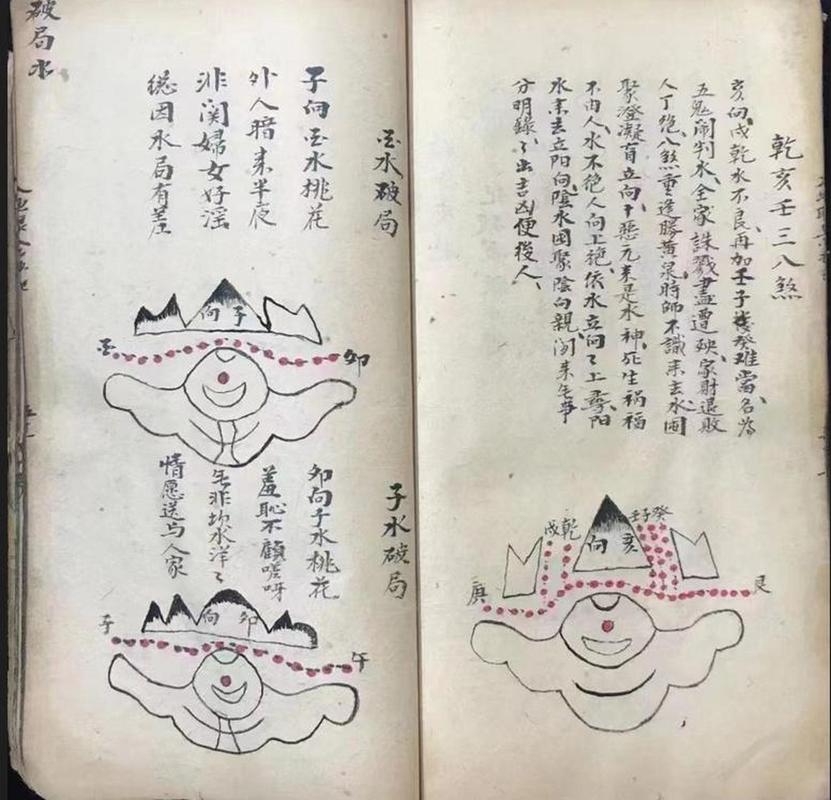 乾亥壬三八煞
亥向戌乾水不良再加壬子癸難當名為
五鬼闹判水全家誅戮盡遭殃家財退敗
人丁绝八煞重逢勝黄泉時師不識来去水囯
聚澄凝盲立向干惡元来是水神死生禍福
不由人水不绝人向上绝依水立向向上尋阳
水来去立阳向陰水囯聚陰向親闲来無事
分明錄錄出吉凶便後人
戌 乾 向 亥 壬子癸
庚 艮
酉水破局
子向酉水桃花
外人暗来半夜
非関婦女好淫
總因水局有差
向 子
酉 卯
子水破局
卯向子水桃花
羞恥不顧嗟呀
無非坎水洋洋
情愿送与人家
向 卯
子 午
破局水